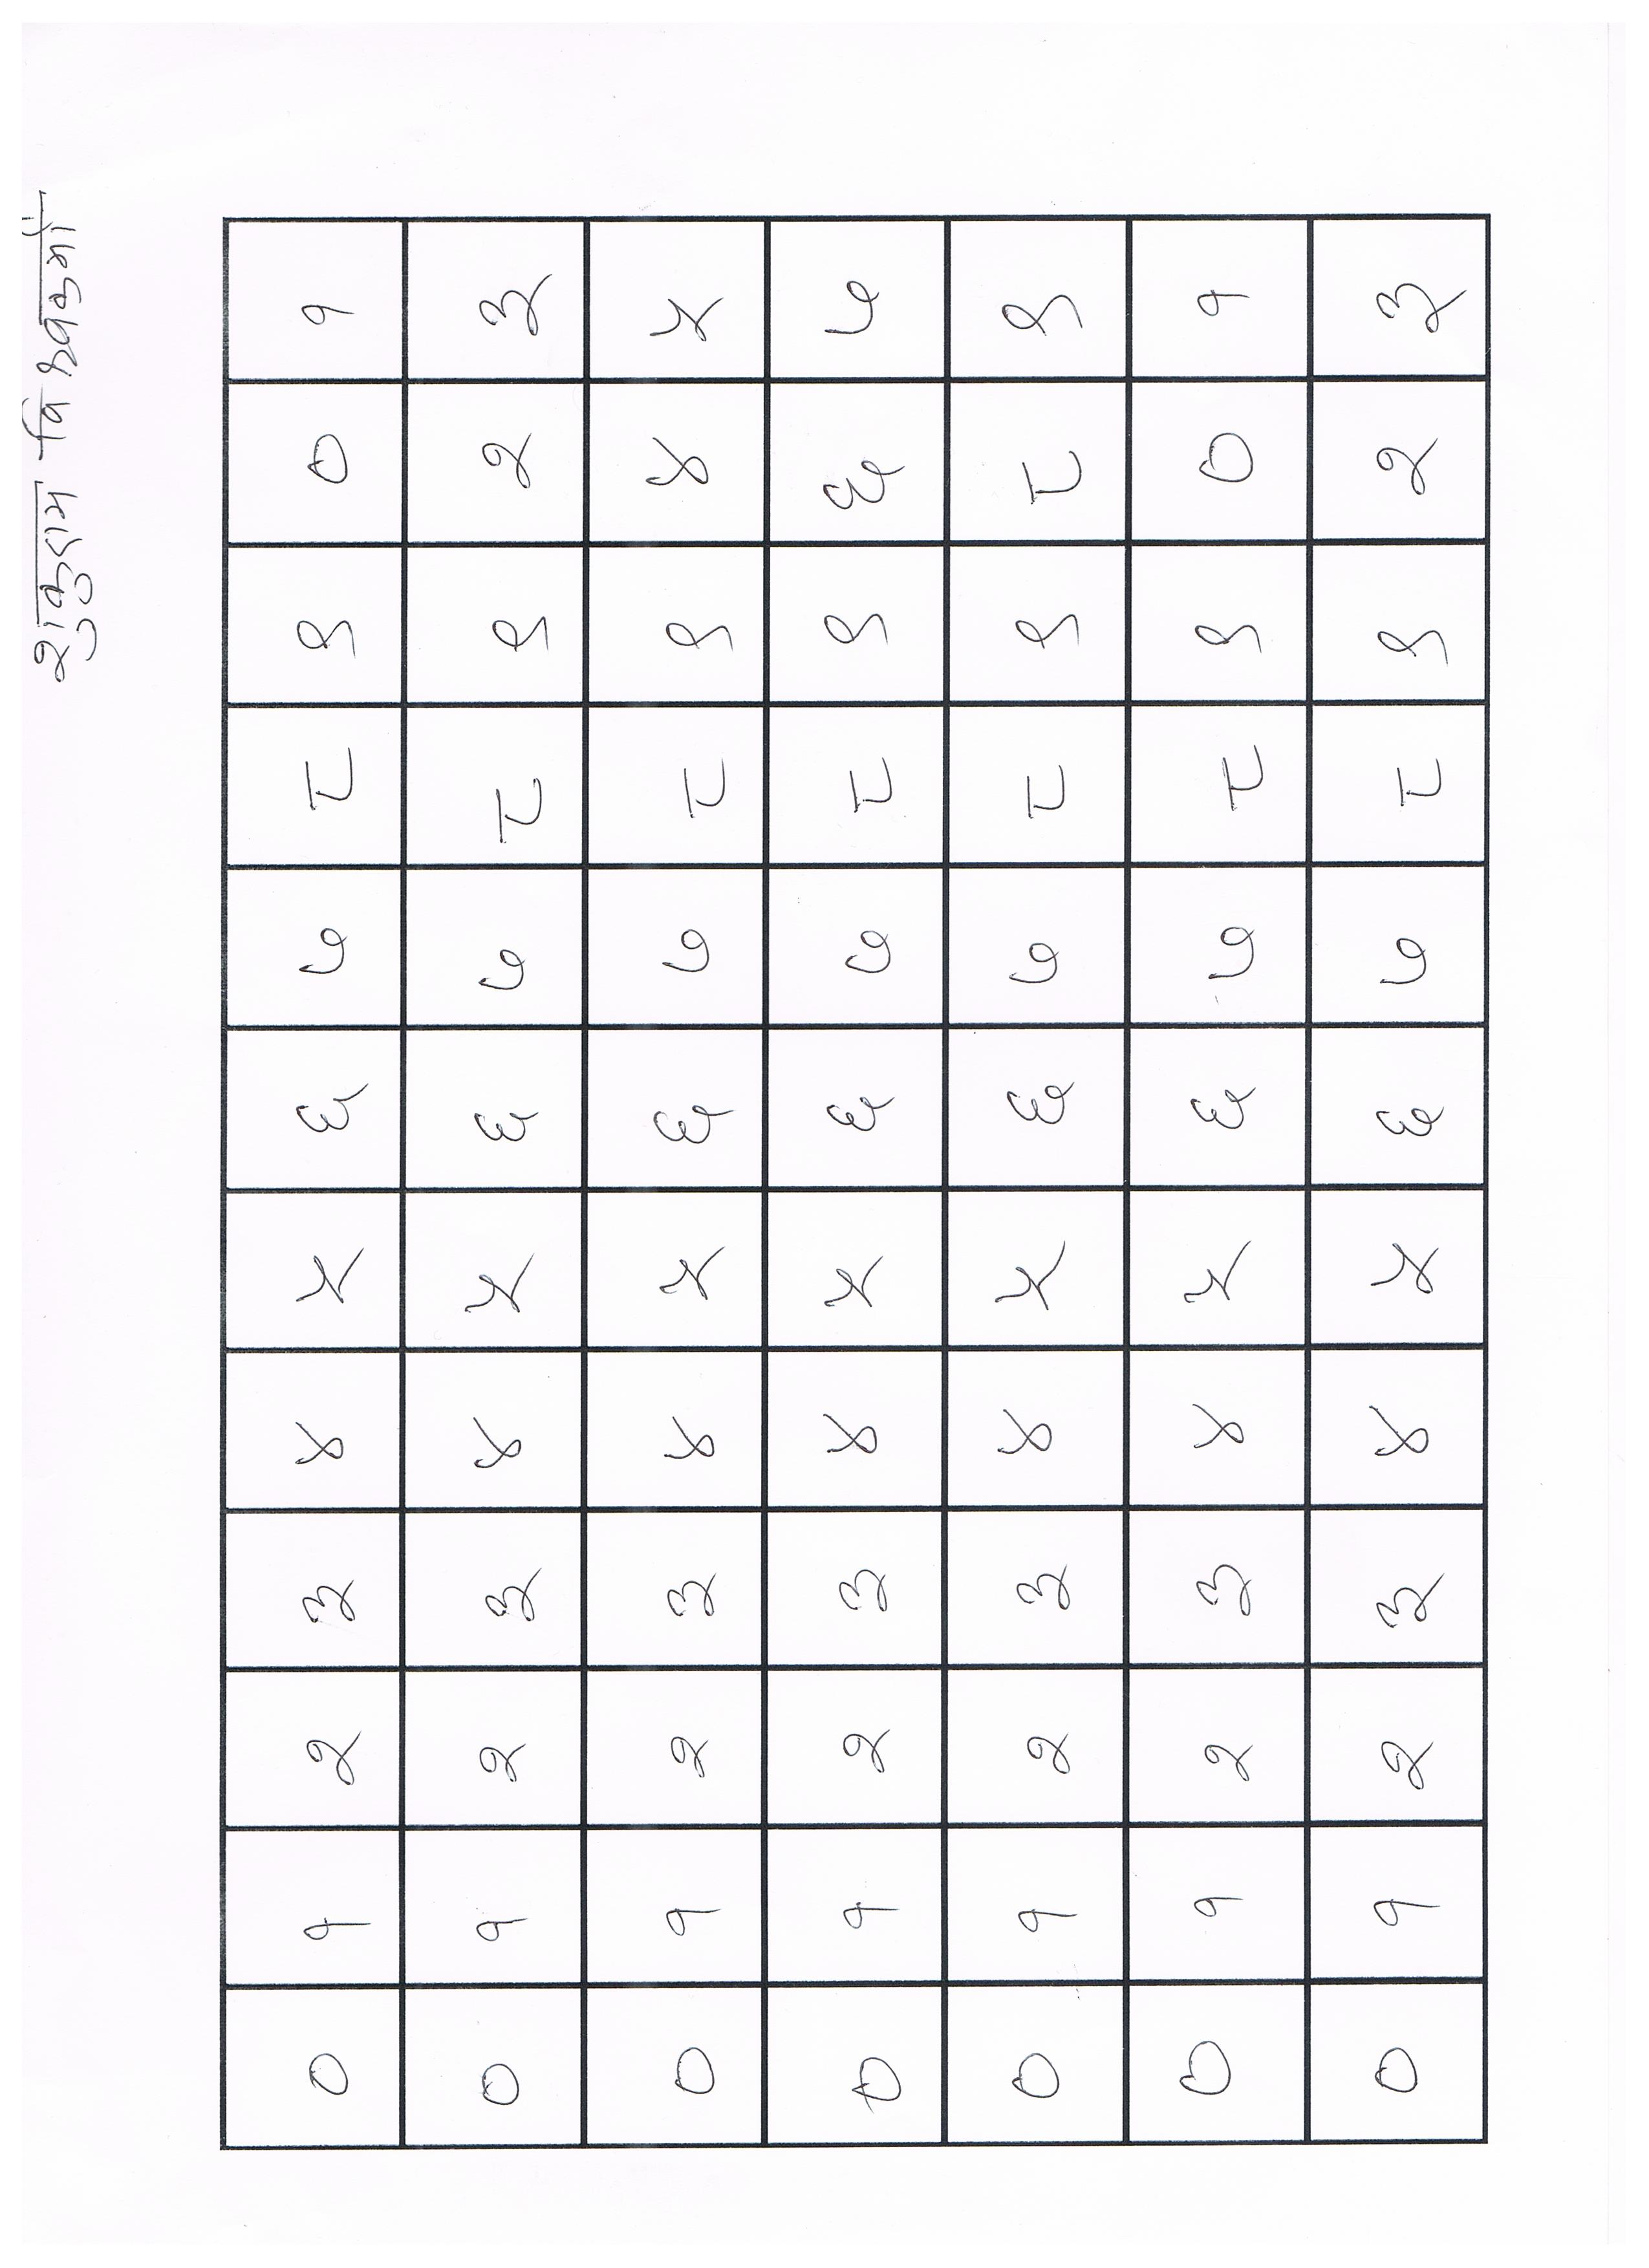 शुकुराम विश्वकर्मा
० १ २ ३ ४ ५ ६ ७ ८ ९ ० १
० १ २ ३ ४ ५ ६ ७ ८ ९ २ ३
० १ २ ३ ४ ५ ६ ७ ८ ९ ४ ५
० १ २ ३ ४ ५ ६ ७ ८ ९ ६ ७
० १ २ ३ ४ ५ ६ ७ ८ ९ ८ ९
० १ २ ३ ४ ५ ६ ७ ८ ९ ० १
० १ २ ३ ४ ५ ६ ७ ८ ९ २ ३